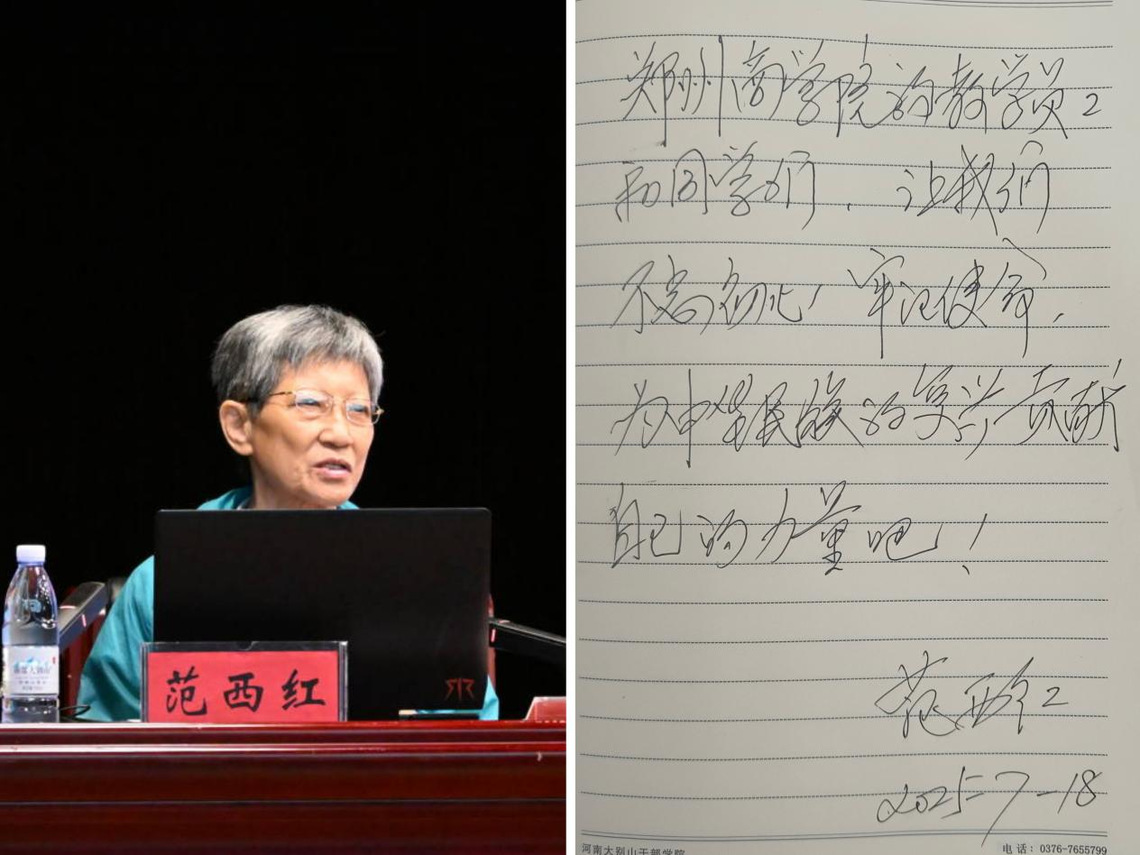 范西红
郑州商学院的教学员工
和同学们，让我们
不忘初心！牢记使命，
为中华民族的复兴贡献
自己的力量吧！
范西红
2025-7-18
河南大别山干部学院
电话：0376-7655799